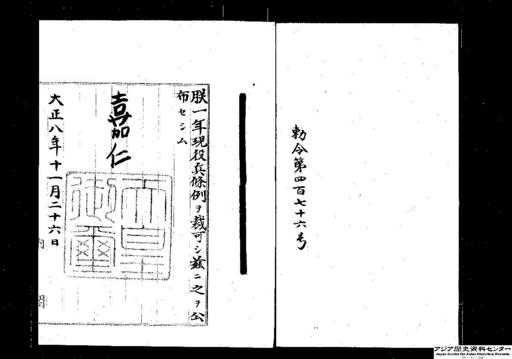 勅令第四百七十六号
朕一年現役兵條例ヲ裁可シ玆ニ之ヲ公
布セシム
嘉仁
天皇
御璽
大正八年十一月二十六日
内閣
アジア歴史資料センター
Japan Center for Asian Historical Records